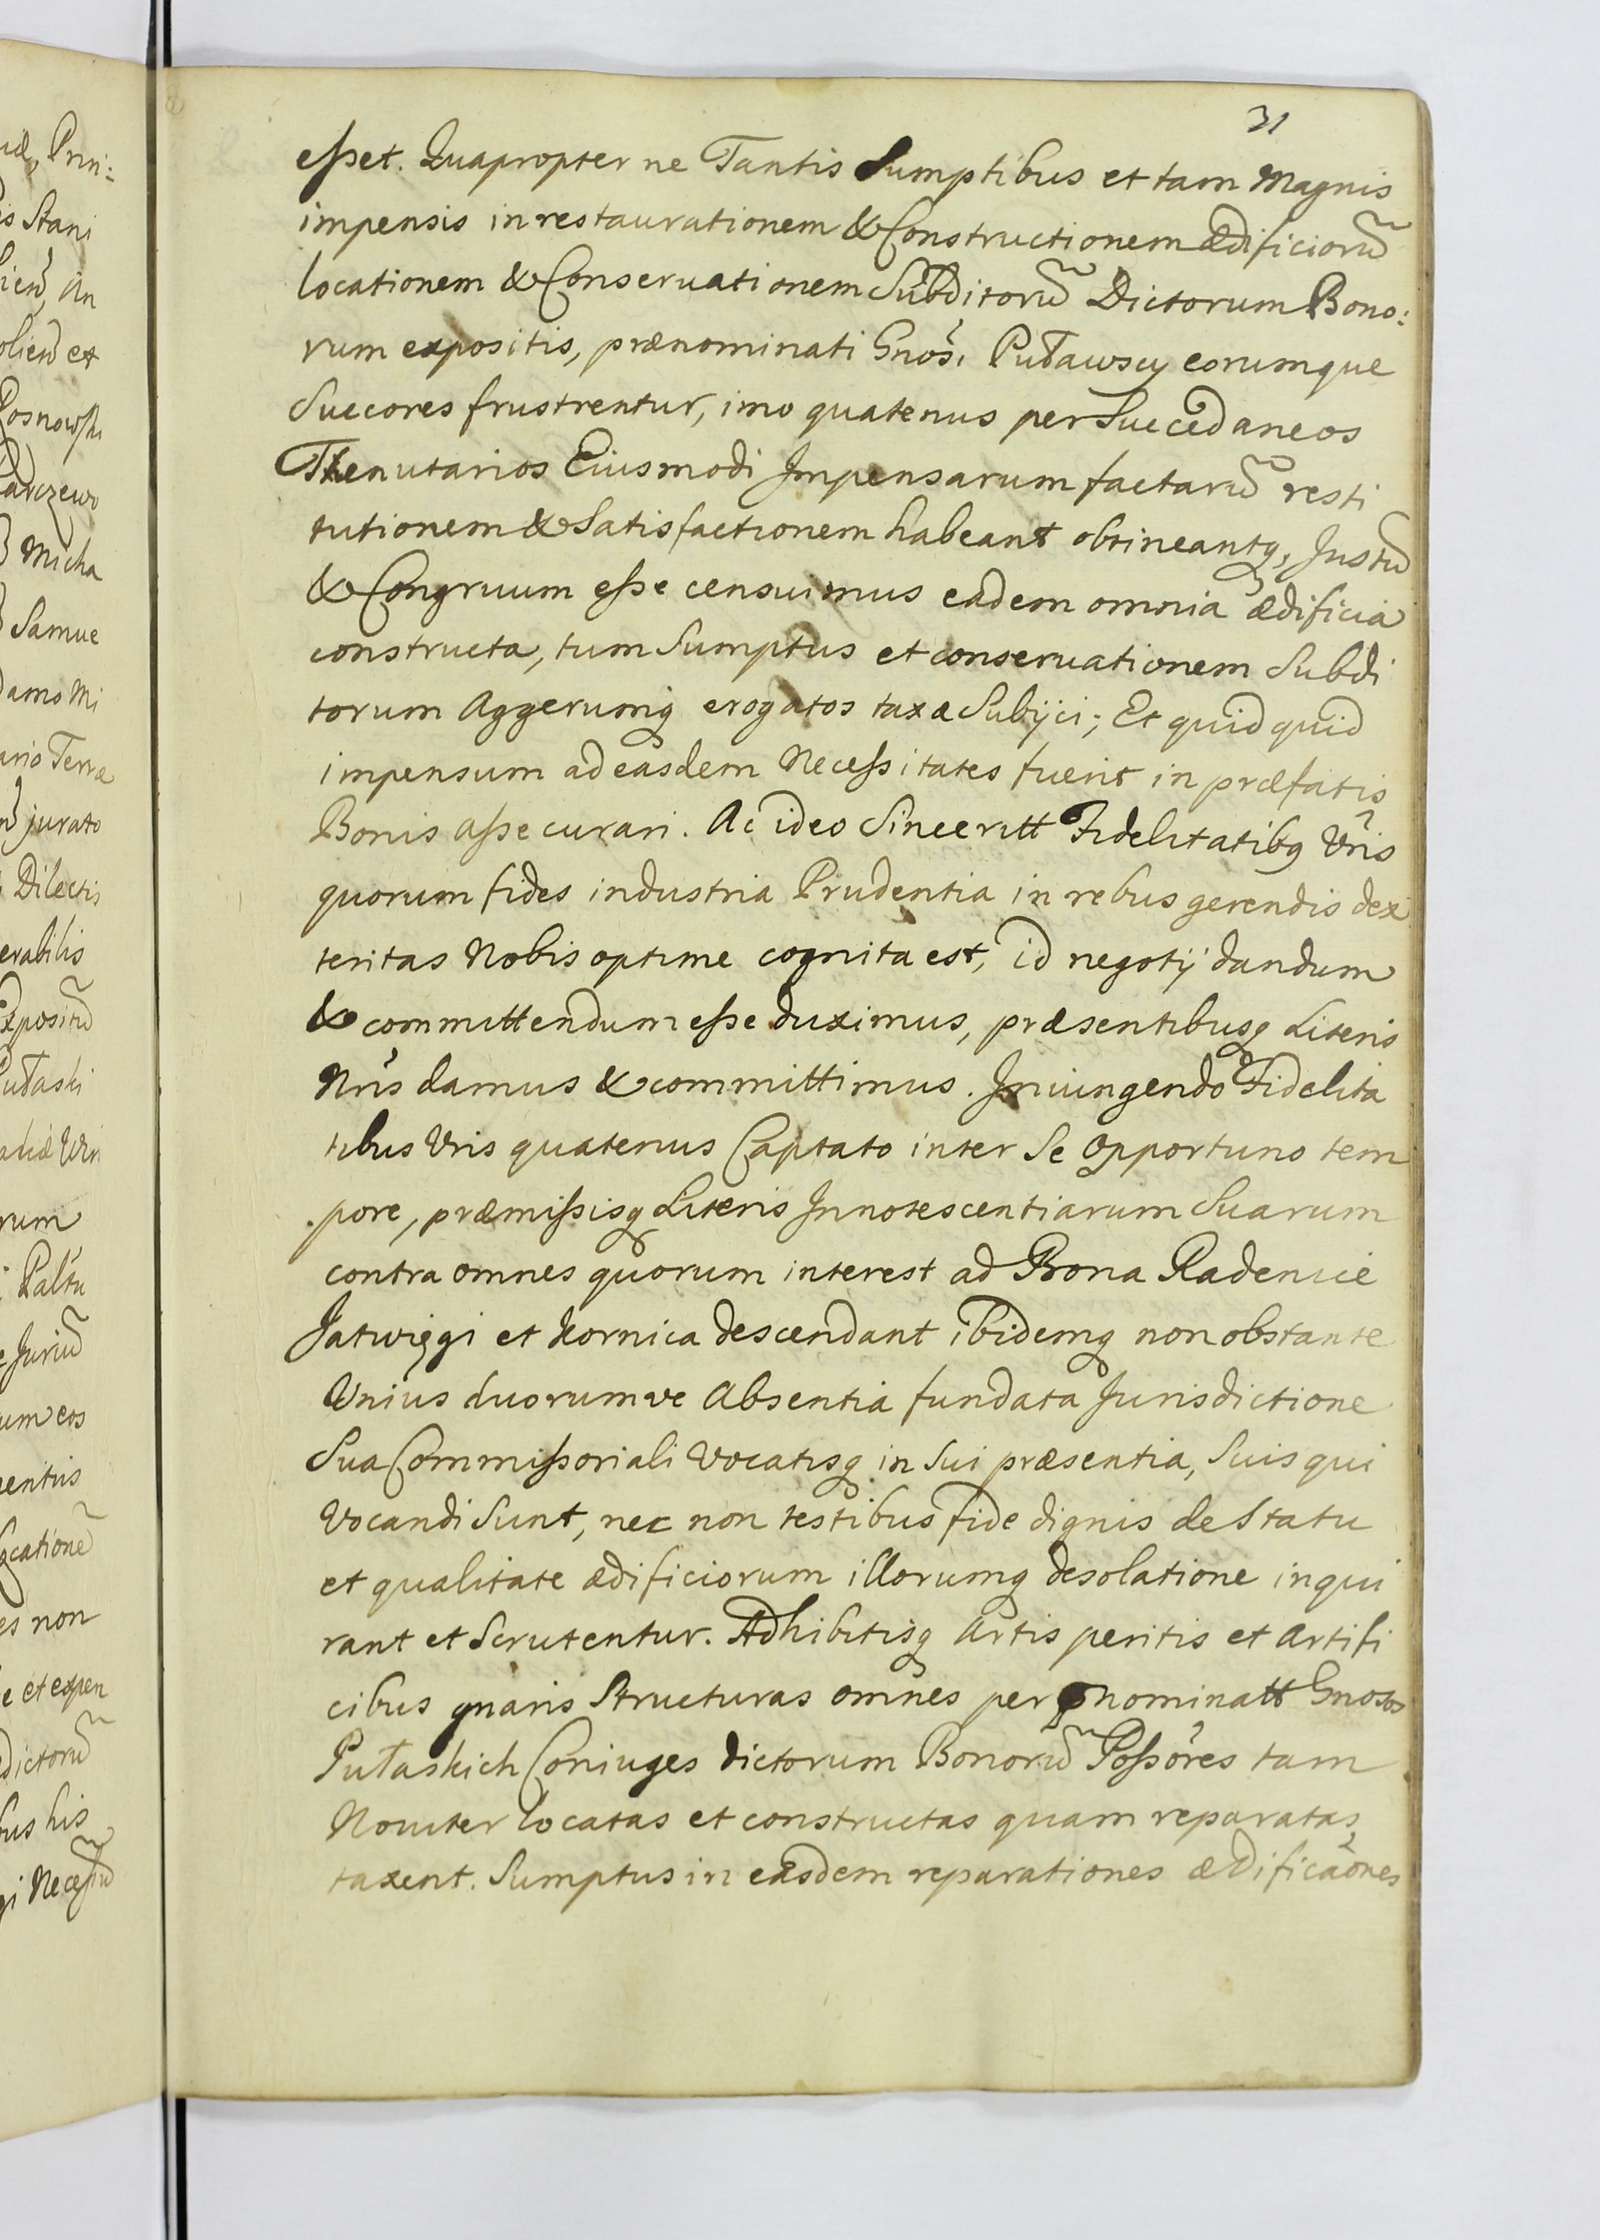 31
esset. Quapropter ne Tantis Sumptibus et tam Magnis
impensis in restaurationem & Constructionem ædificiorũ
locationem & Conseruationem Subditorũ Dictorum Bono:
rum expositis, prænominati Gnosi Puławscy eorumque
Succores frustrentur, imo quatenus per Succedaneos
Thenutarios Eiusmodi Impensarum factarũ resti
tutionem & Satisfactionem habeant obtineantq, Justũ
& Congruum esse censuimus eadem omnia ædificia
constructa, tum Sumptus et conseruationem Subdi
torum Aggerumq erogatos taxæ Subijci; Et quidquid
impensum ad easdem Necessitates fuerit in præfatis
Bonis assecurari. Ac ideo Sinceritt Fidelitatibq Vris
quorum fides industria Prudentia in rebus gerendis dex
teritas Nobis optime cognita est, id negotij dandum
& committendum esse duximus, præsentibusq Literis
Nris damus & committimus. Iniungendo Fidelita
tibus Vris quatenus Captato inter Se opportuno tem
pore, præmissisq Literis Innotescentiarum Suarum
contra omnes quorum interest ad Bona Radenicé
Jatwięgi et Hornica descendant ibidemq non obstante
Vnius duorumve Absentia fundata Jurisdictione
Sua Commissoriali Vocatisq in Sui præsentia, Suis qui
Vocandi Sunt, nec non testibus fide dignis de Statu
et qualitate ædificiorum illorumq desolatione inqui
rant et Scrutentur. Adhibitisq Artis peritis et Artifi
cibus gnaris Structuras omnes per pnominatt Gnosos
Pułaskich Coniuges dictorum Bonorũ Possores tam
Nouiter locatas et constructas quam reparatas
taxent. Sumptus in easdem reparationes ædificaones